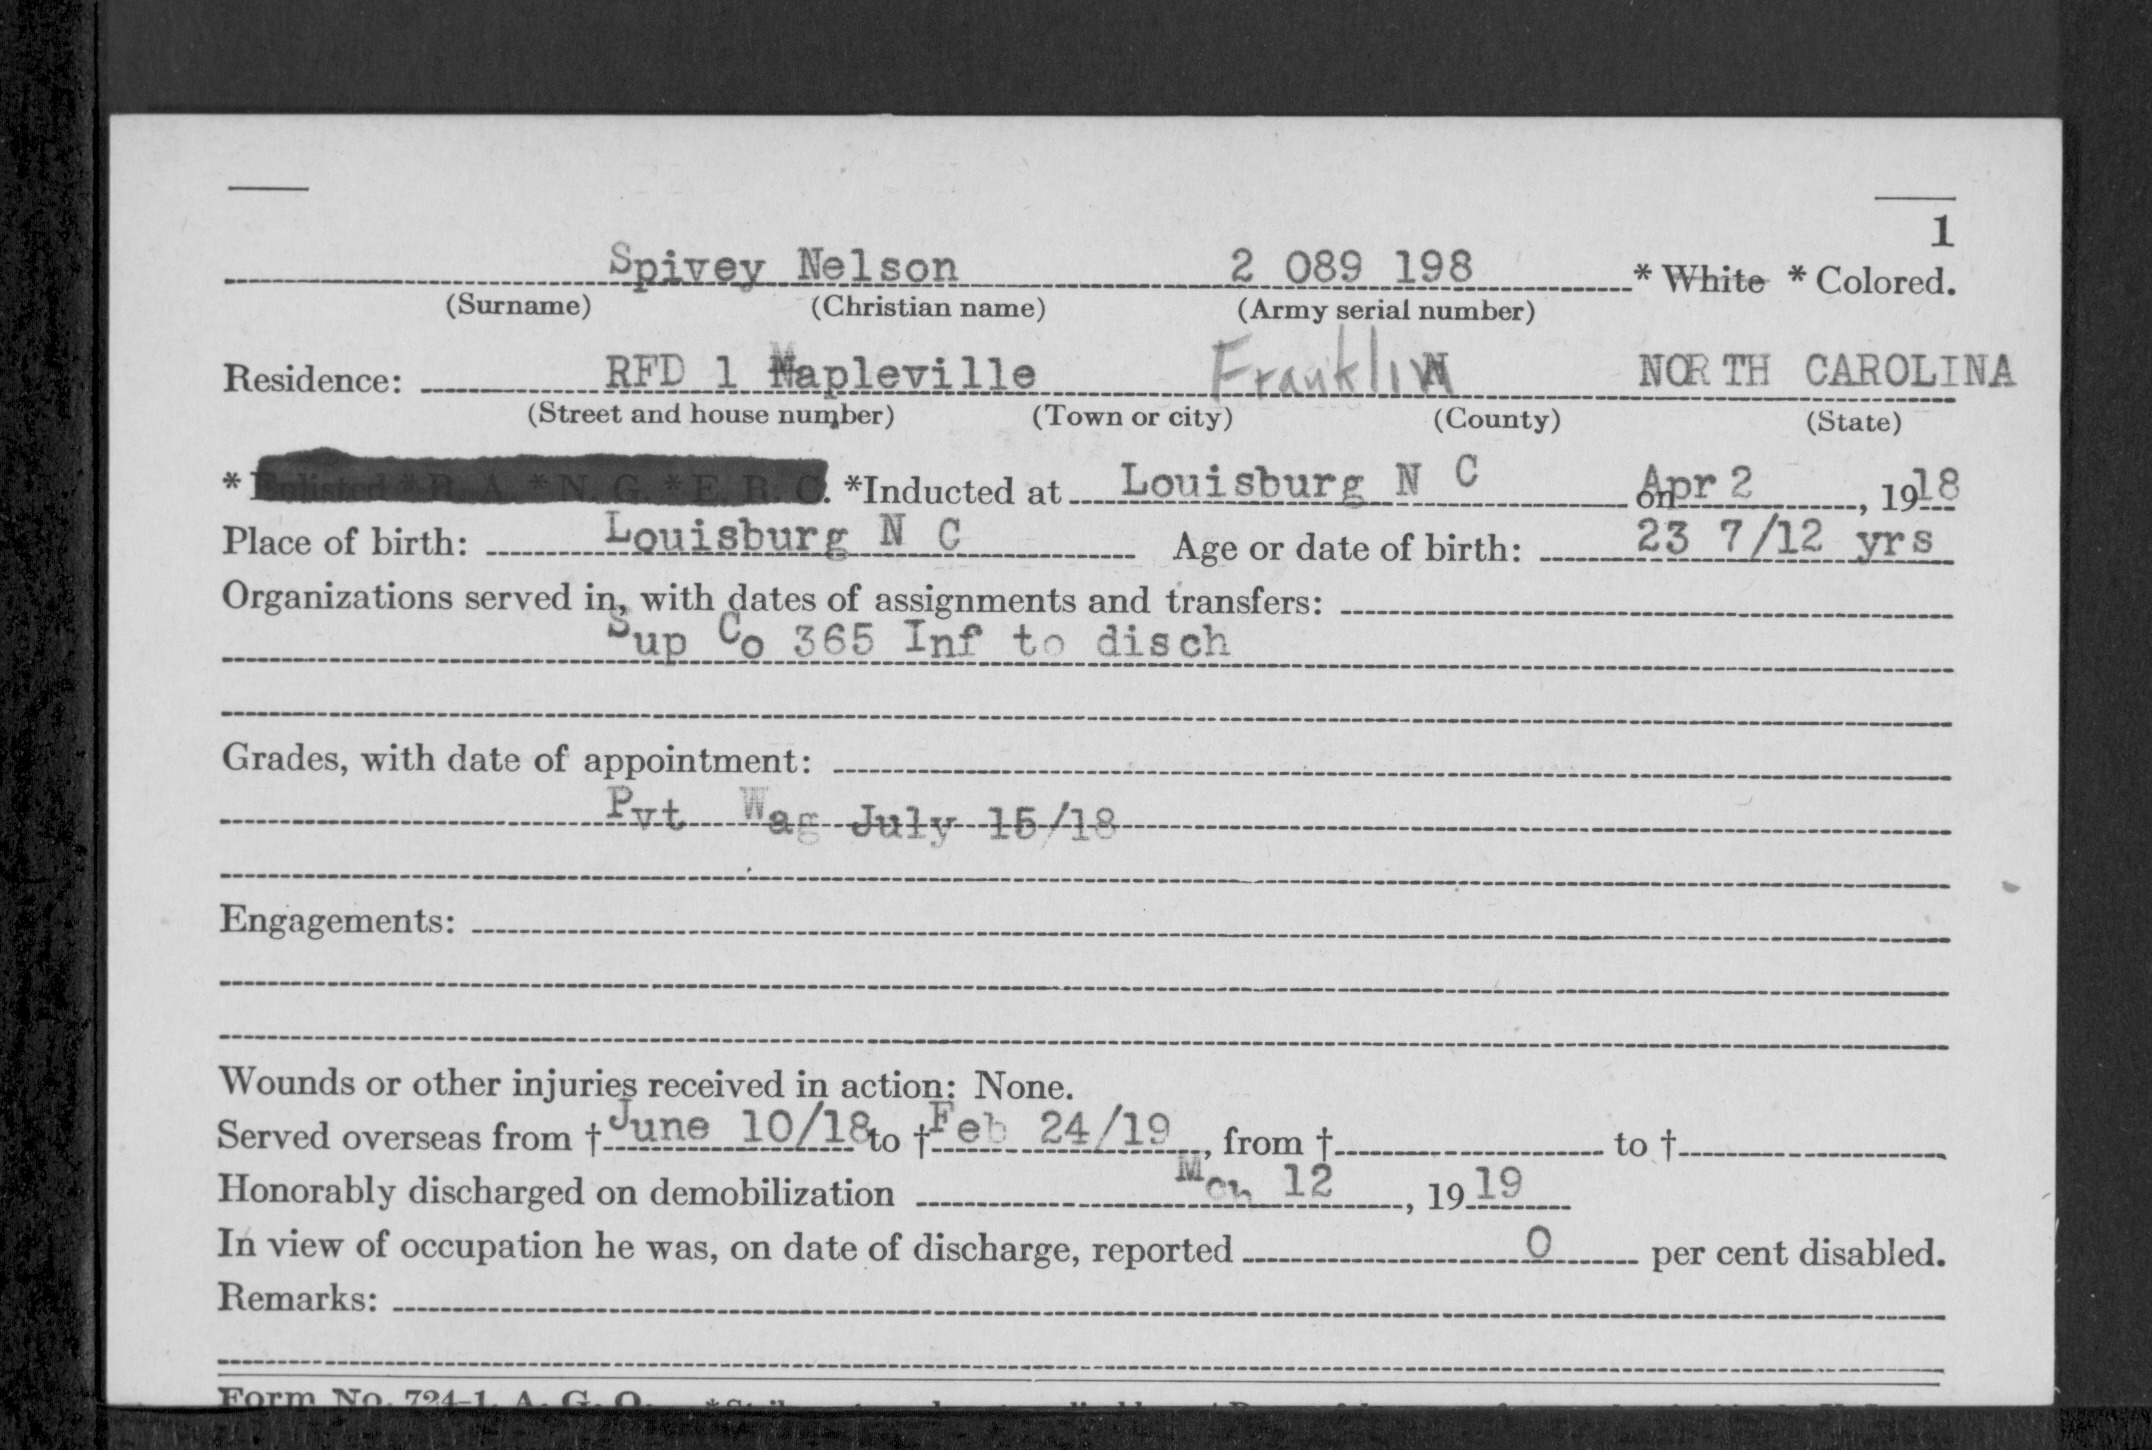 1
Spivey Nelson 2 089 198 * White * Colored.
(Surname) (Christian name) (Army serial number)
Residence: RFD 1 Mapleville Franklin NORTH CAROLINA
(Street and house number) (Town or city) (County) (State)
* Enlisted * R. A. * N. G. * E. R. C. *Inducted at Louisburg N C on Apr 2, 1918
Place of birth: Louisburg N C Age or date of birth: 23 7/12 yrs
Organizations served in, with dates of assignments and transfers:
Sup Co 365 Inf to disch
Grades, with date of appointment:
Pvt Wag July 15/18
Engagements:
Wounds or other injuries received in action: None.
Served overseas from † June 10/18 to † Feb 24/19, from † to †
Honorably discharged on demobilization Mch 12, 1919
In view of occupation he was, on date of discharge, reported 0 per cent disabled.
Remarks:
Form No. 724-1, A. G. O.